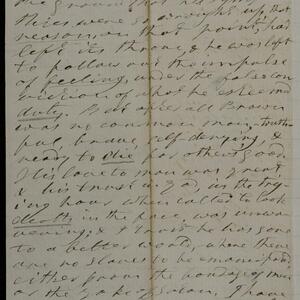 the ground
this, were so wrought up, that
reason, on that point, has
left its throne, & he was left
to follow out the impulse
of feeling, under the false con
viction of what he esteemed
duty. But after all Brown
was no common man, truth
ful, brave, self-denying, &
ready to die for others good.
His love to man was great
& his trust in God, in the try-
ing hour when called to look
death in the face, was unwa
vering; & I trust he has gone
to a better world, where there
are no slaves to be emancipated
either from the bondage of men
or the yoke of I have